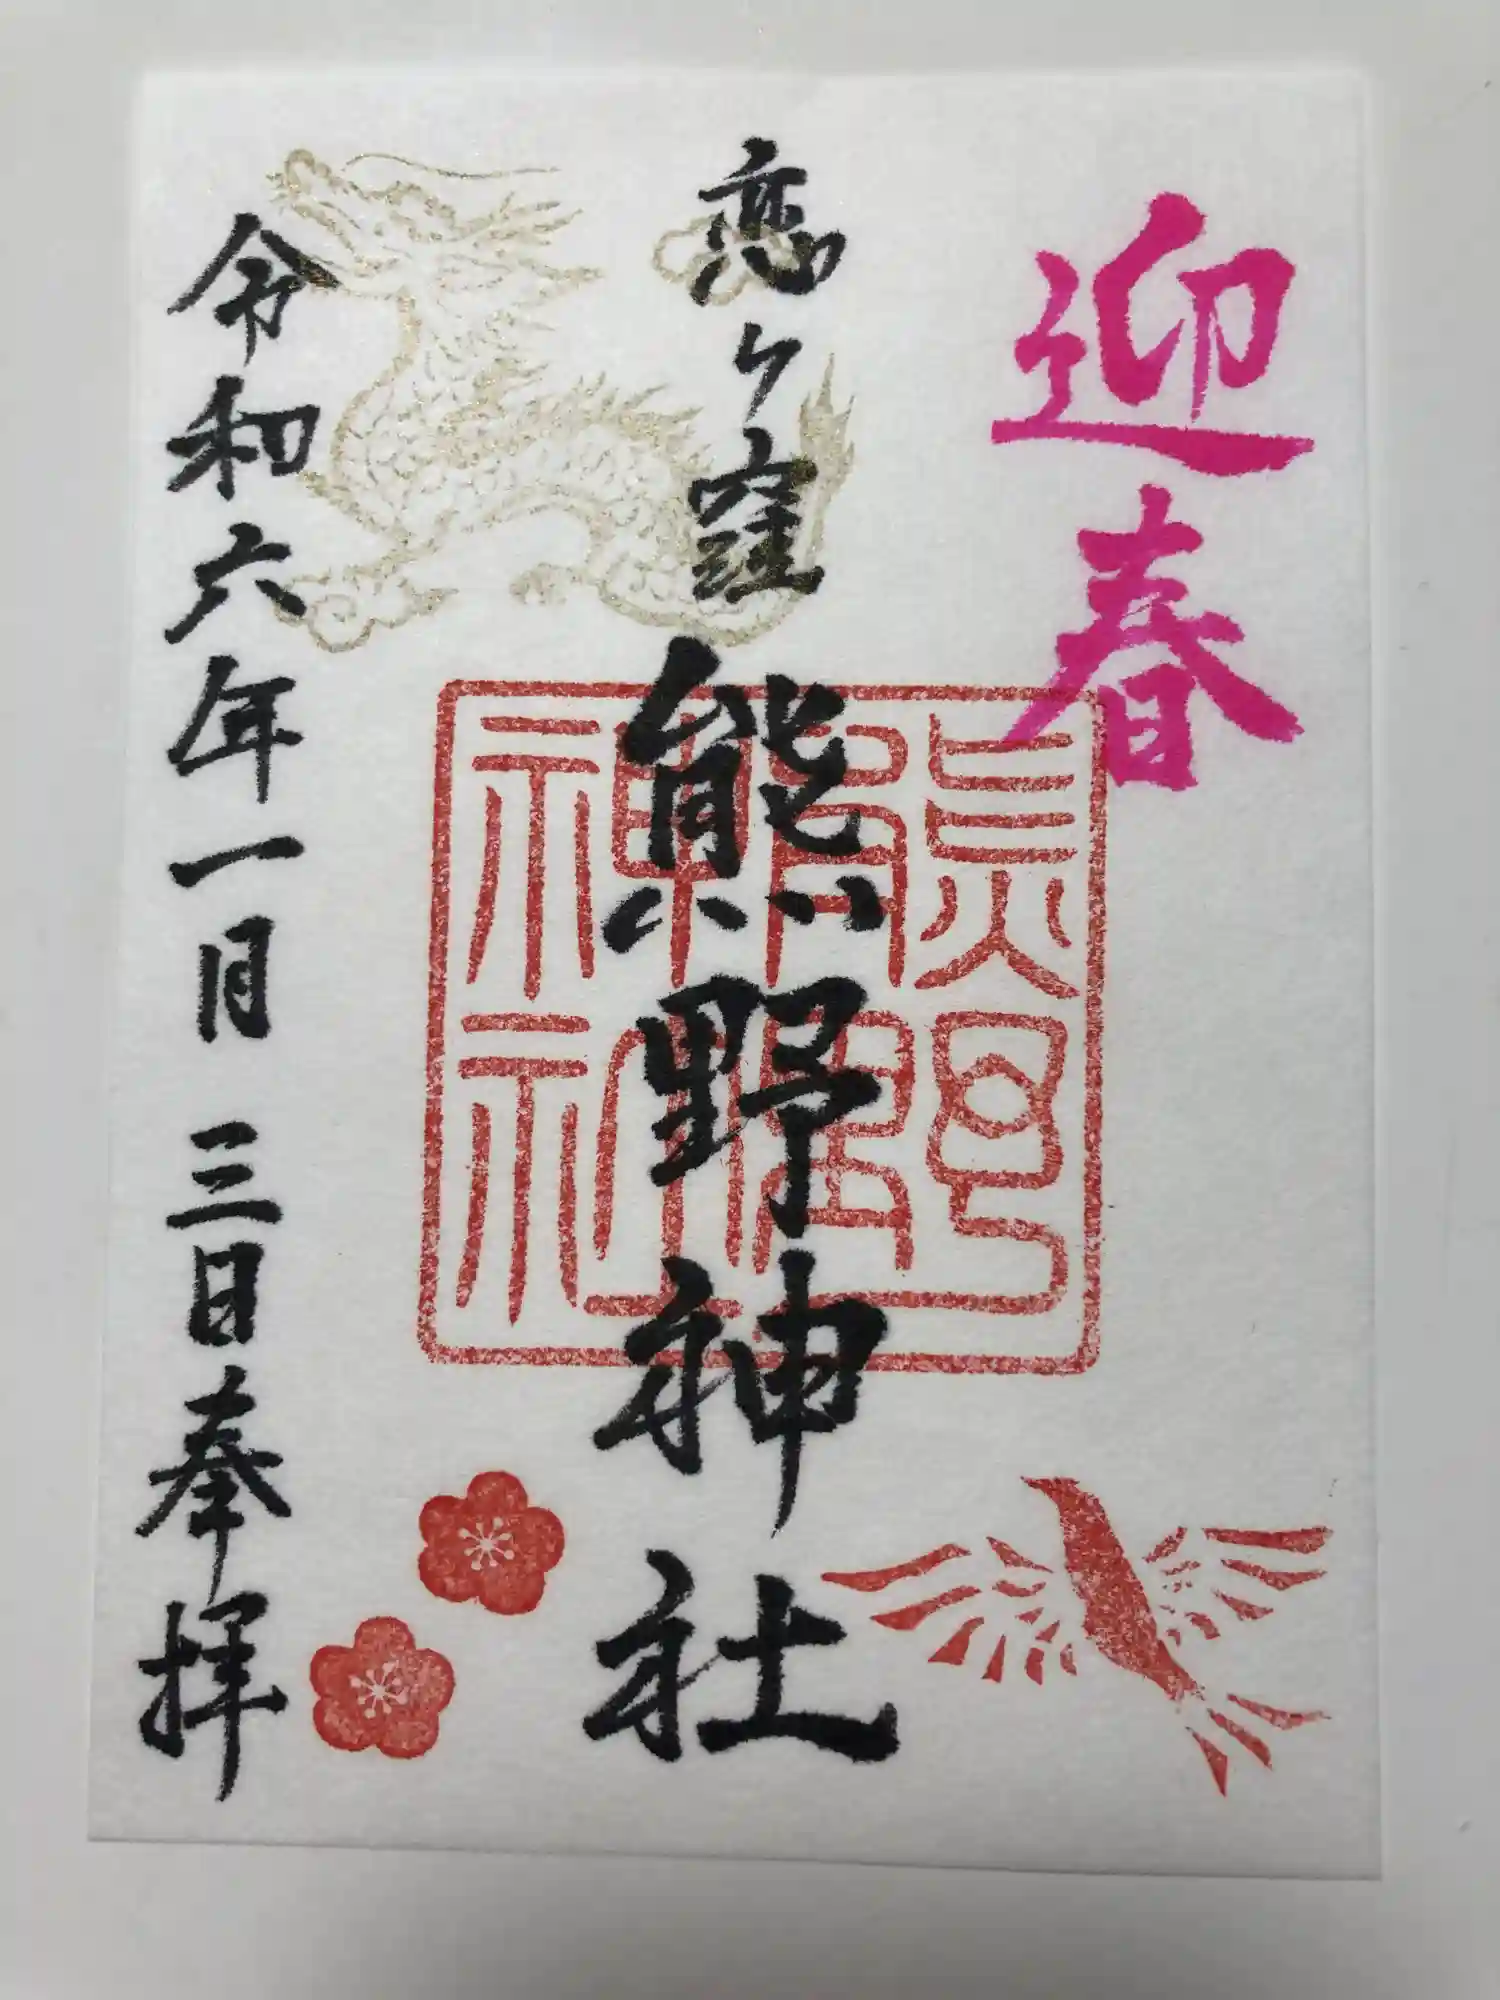 迎春
恋ヶ窪熊野神社
令和六年一月三日奉拝